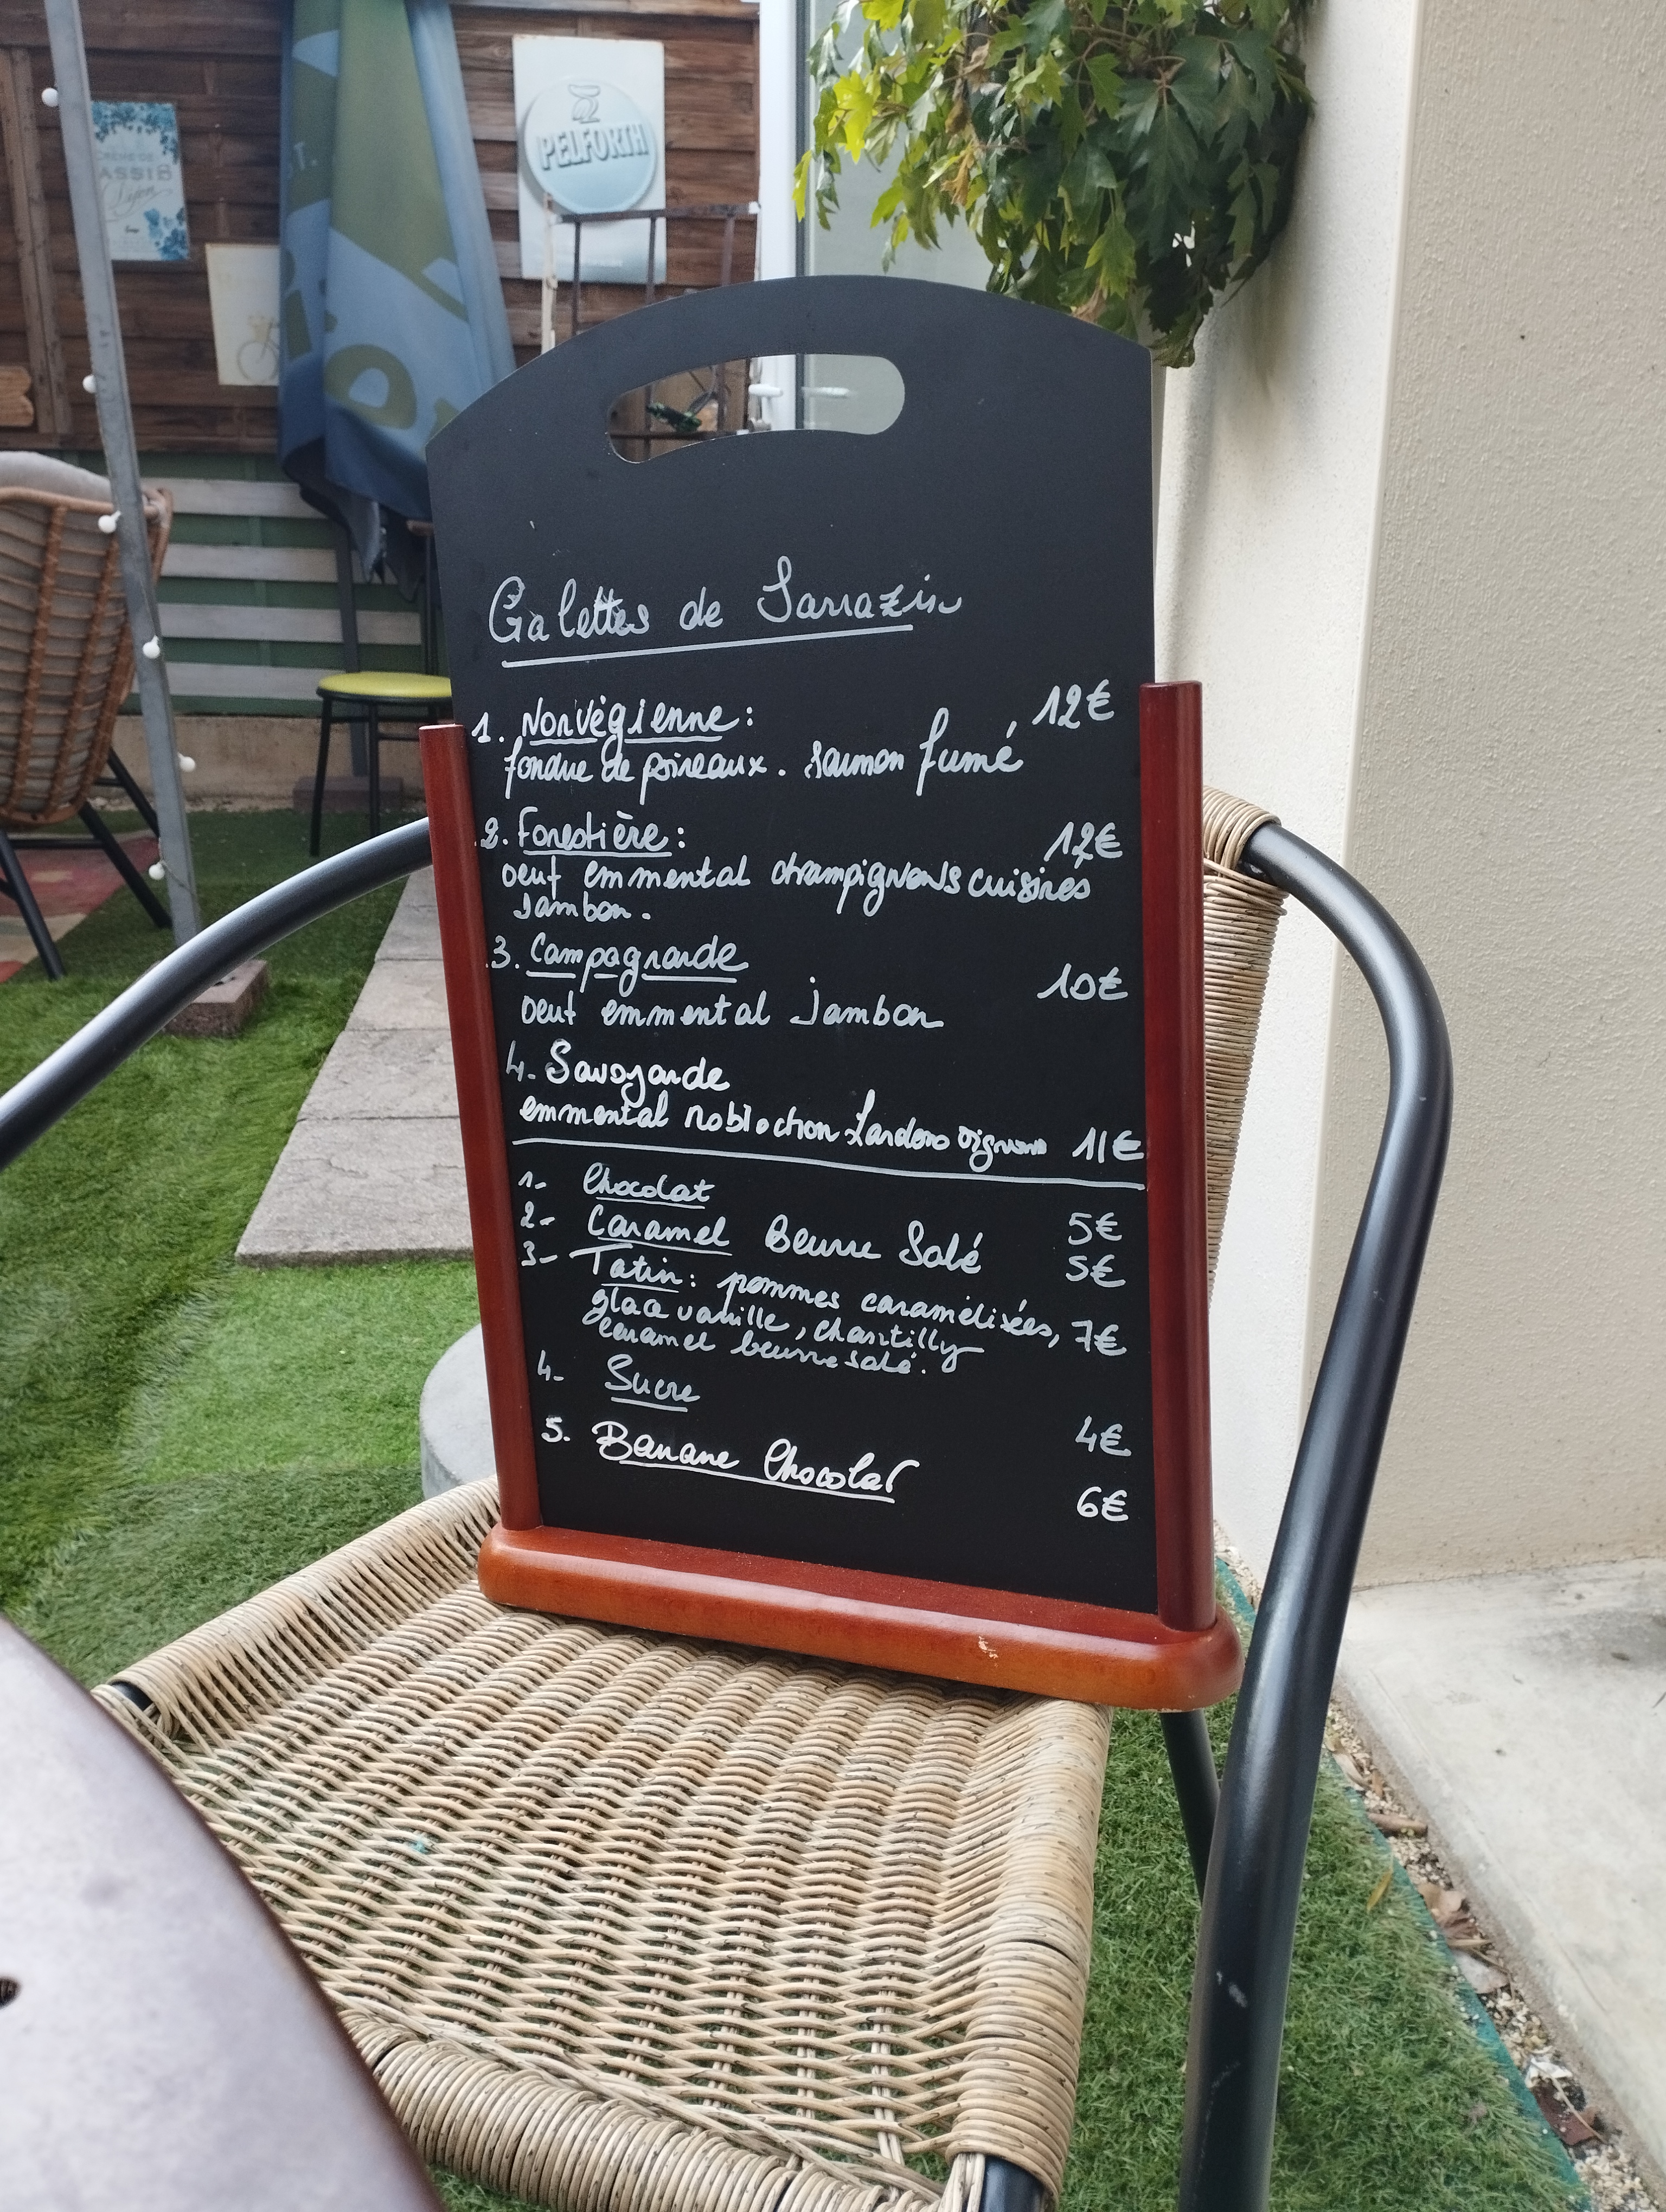 CRÈME DE
CASSIS
Dijon
PELFORTH
Galettes de Sarrazin
1. Norvégienne : 12€
fondue de poireaux. saumon fumé
2. Forestière : 12€
oeuf emmental champignons cuisinés
jambon.
3. Campagnarde
10€
oeuf emmental jambon
4. Savoyarde
emmental roblochon Lardons oignons 11€
1- Chocolat 5€
2- Caramel Beurre Salé 5€
3- Tatin : pommes caramélisées, 7€
glace vanille, chantilly
caramel beurre salé.
4- Sucre 4€
5. Banane Chocolat 6€